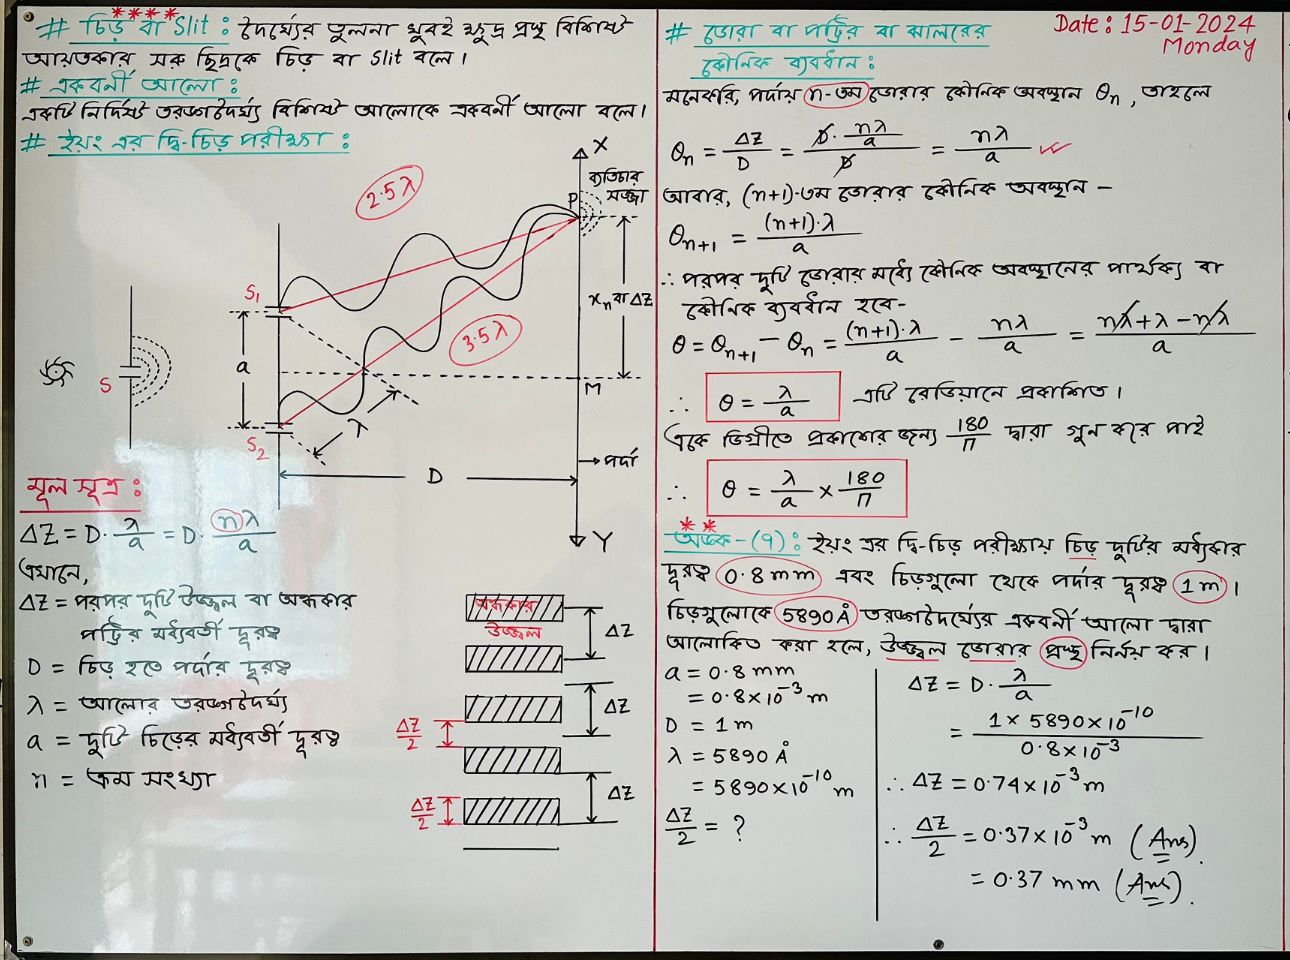 # চিড় বা Slit : দৈর্ঘ্যের তুলনা খুবই ক্ষুদ্র প্রস্থ বিশিষ্ট
আয়তকার সরু ছিদ্রকে চিড় বা Slit বলে।
# একবর্নী আলো :
একটি নির্দিষ্ট তরঙ্গদৈর্ঘ্য বিশিষ্ট আলোকে একবর্নী আলো বলে।
# ইয়ং এর দ্বি-চিড় পরীক্ষা :
X
ব্যতিচার
সজ্জা
P
2.5λ
S₁
xₙ বা ΔZ
3.5λ
S
a
M
λ
S₂
পর্দা
D
Y
মূল সূত্র :
ΔZ = D·λ/a = D·nλ/a
এখানে,
ΔZ = পরপর দুটি উজ্জ্বল বা অন্ধকার
পট্টির মধ্যবর্তী দূরত্ব
D = চিড় হতে পর্দার দূরত্ব
λ = আলোর তরঙ্গদৈর্ঘ্য
a = দুটি চিড়ের মধ্যবর্তী দূরত্ব
n = ক্রম সংখ্যা
অন্ধকার
উজ্জ্বল
ΔZ
ΔZ
ΔZ/2
ΔZ
ΔZ/2
Date : 15-01-2024
Monday
# ডোরা বা পট্টির বা ঝালরের
কৌনিক ব্যবধান :
মনেকরি, পর্দায় n-তম ডোরার কৌনিক অবস্থান θₙ, তাহলে
θₙ = ΔZ/D = D·nλ/a / D = nλ/a
আবার, (n+1)-তম ডোরার কৌনিক অবস্থান –
θₙ₊₁ = (n+1)·λ/a
∴ পরপর দুটি ডোরার মধ্যে কৌনিক অবস্থানের পার্থক্য বা
কৌনিক ব্যবধান হবে-
θ = θₙ₊₁ – θₙ = (n+1)·λ/a – nλ/a = nλ+λ–nλ/a
∴ θ = λ/a এটি রেডিয়ানে প্রকাশিত।
একে ডিগ্রীতে প্রকাশের জন্য 180/π দ্বারা গুন করে পাই
∴ θ = λ/a × 180/π
অঙ্ক-(৭) : ইয়ং এর দ্বি-চিড় পরীক্ষায় চিড় দুটির মধ্যকার
দূরত্ব 0.8 mm এবং চিড়গুলো থেকে পর্দার দূরত্ব 1 m।
চিড়গুলোকে 5890 Å তরঙ্গদৈর্ঘ্যের একবর্নী আলো দ্বারা
আলোকিত করা হলে, উজ্জ্বল ডোরার প্রস্থ নির্নয় কর।
a = 0.8 mm
= 0.8×10⁻³ m
D = 1 m
λ = 5890 Å
= 5890×10⁻¹⁰ m
ΔZ/2 = ?
ΔZ = D·λ/a
= 1×5890×10⁻¹⁰/0.8×10⁻³
∴ ΔZ = 0.74×10⁻³ m
∴ ΔZ/2 = 0.37×10⁻³ m (Ans).
= 0.37 mm (Ans).